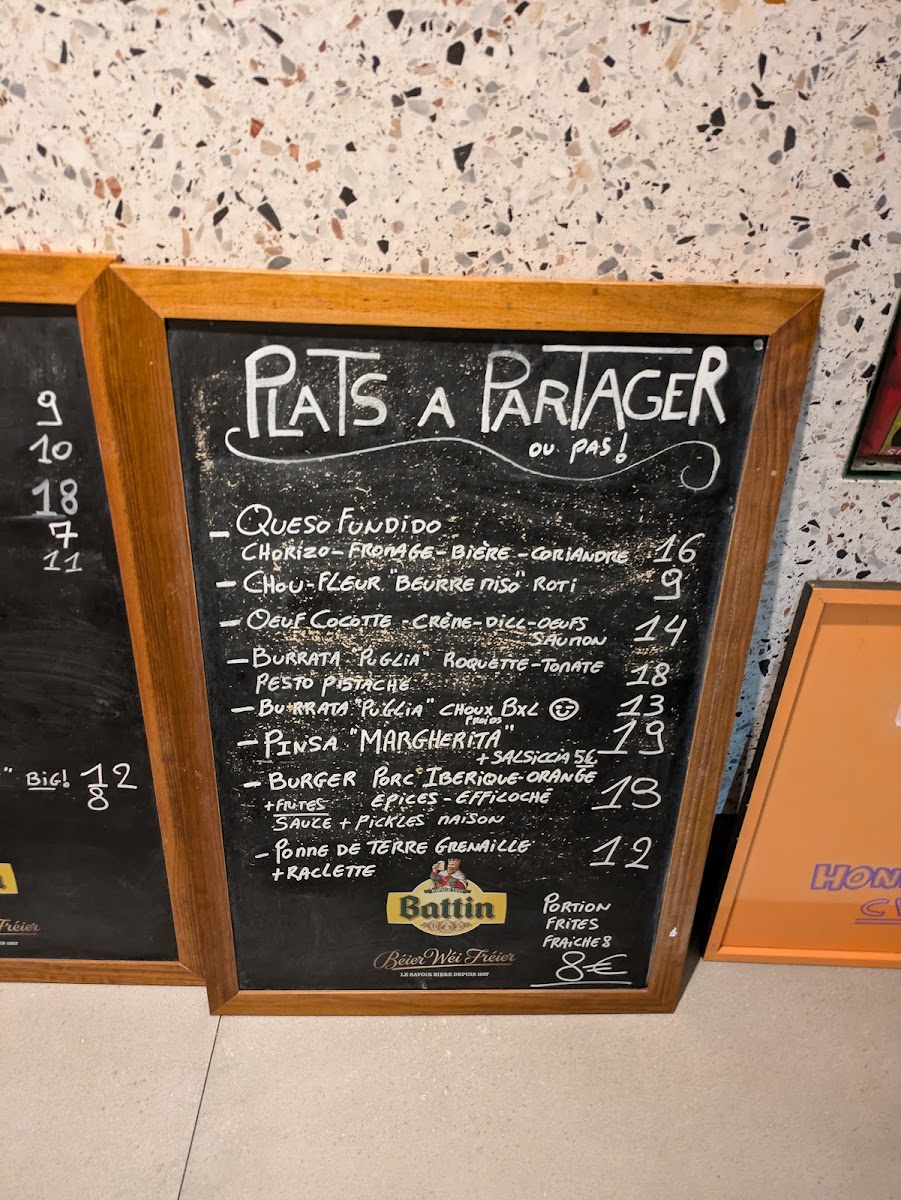 9
10
18
7
11
" BIG! 12
8
Fréier
PLATS A PARTAGER
OU PAS!
- QUESO FUNDIDO
CHORIZO - FROMAGE - BIÈRE - CORIANDRE 16
- CHOU-FLEUR "BEURRE MISO" ROTI 9
- OEUF COCOTTE - CRÈME - DILL - OEUFS
SAUMON 14
- BURRATA "PUGLIA" ROQUETTE - TOMATE
PESTO PISTACHE 18
- BURRATA "PUGLIA" CHOUX BXL 13
FROIDS
- PINSA "MARGHERITA" 19
+ SALSICCIA 5€
- BURGER PORC IBERIQUE - ORANGE
+ FRITES EPICES - EFFILOCHÉ 19
SAUCE + PICKLES MAISON
- POMME DE TERRE GRENAILLE 12
+ RACLETTE
Battin
Béier Wéi Fréier
LE SAVOIR BIÈRE DEPUIS 1937
PORTION
FRITES
FRAICHES
8€
HON